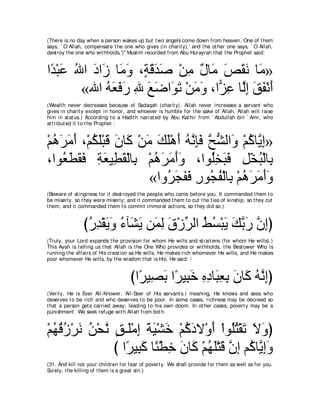 (There is no day when a person wakes up but two angels come down from heaven. One of them
says, `O Allah, compensate the one who gives (in charity),' and the other one says, `O Allah,
destroy the one who withholds.')'' Muslim recorded from Abu Hurayrah that the Prophet said:
«مَا نَقَصَ مَالٌ مِنْ صَدَقَةٍ، وَمَا زَادَ اللهُ عَبْدًا
بِعَفْوٍ إِلَّا عِزًّا، وَمَنْ تَوَاضَعَ للهِ رَفَعَهُ الله»
(Wealth never decreases because of Sadaqah (charity). Allah never increases a servant who
gives in charity except in honor, and whoever is humble for the sake of Allah, Allah will raise
him in status.) According to a Hadith narrated by Abu Kathir from `Abdullah bin `Amr, who
attributed it to the Prophet :
«إِيَّاكُمْ وَالشُّحَّ فَإِنَّهُ أَهْلَكَ مَنْ كَانَ قَبْلَكُمْ، أَمَرَهُمْ
بِالْبُخْلِ فَبَخِلُوا، وَأَمَرَهُمْ بِالْقَطِيعَةِ فَقَطَعُوا،
وَأَمَرَهُمْ بِالْفُجُورِ فَفَجَرُوا»
(Beware of stinginess for it destroyed the people who came before you. It commanded them to
be miserly, so they were miserly; and it commanded them to cut the ties of kinship, so they cut
them; and it commanded them to commit immoral actions, so they did so.)
(إِنَّ رَبَّكَ يَبْسُطُ الرِّزْقَ لِمَن يَشَآءُ وَيَقْدِرُ)
(Truly, your Lord expands the provision for whom He wills and straitens (for whom He wills).)
This Ayah is telling us that Allah is the One Who provides or withholds, the Bestower Who is
running the affairs of His creation as He wills. He makes rich whomever He wills, and He makes
poor whomever He wills, by the wisdom that is His. He said: /
(إِنَّهُ كَانَ بِعِبَادِهِ خَبِيرًا بَصِيرًا)
(Verily, He is Ever All-Knower, All-Seer of His servants.) meaning, He knows and sees who
deserves to be rich and who deserves to be poor. In some cases, richness may be decreed so
that a person gets carried away, leading to his own doom. In other cases, poverty may be a
punishment. We seek refuge with Allah from both.
(وَلَا تَقْتُلُوا أَوْلادَكُمْ خَشْيَةَ إِمْلَـقٍ نَّحْنُ نَرْزُقُهُمْ
وَإِيَّاكُم إِنَّ قَتْلَهُمْ كَانَ خِطْئًا كَبِيرًا )
(31. And kill not your children for fear of poverty. We shall provide for them as well as for you.
Surely, the killing of them is a great sin.)